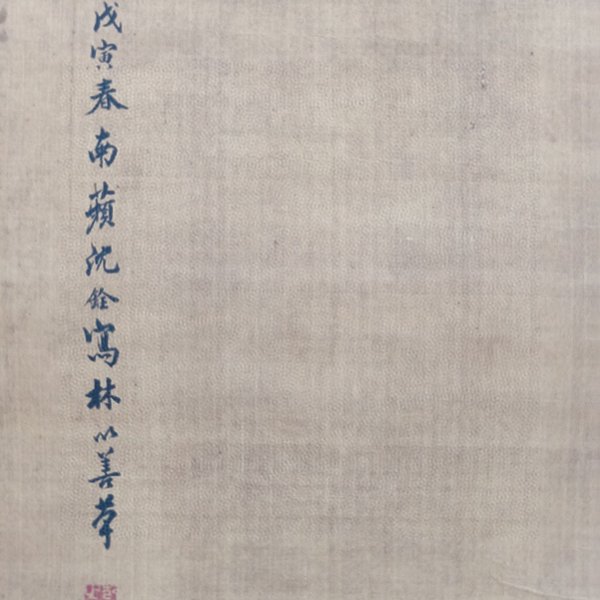 戊寅春南蘋沈銓寫林以善筆